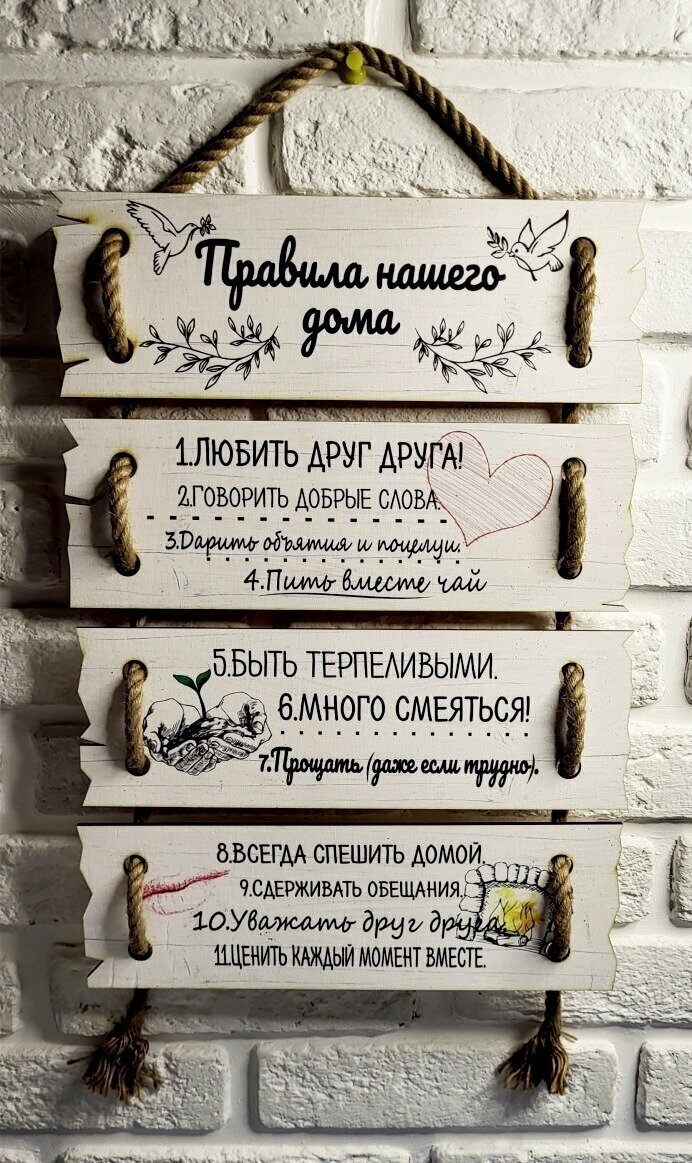 Правила нашего
дома
1.ЛЮБИТЬ ДРУГ ДРУГА!
2.ГОВОРИТЬ ДОБРЫЕ СЛОВА.
3.Дарить объятия и поцелуи.
4.Пить вместе чай
5.БЫТЬ ТЕРПЕЛИВЫМИ.
6.МНОГО СМЕЯТЬСЯ!
7.Прощать (даже если трудно).
8.ВСЕГДА СПЕШИТЬ ДОМОЙ.
9.СДЕРЖИВАТЬ ОБЕЩАНИЯ.
10.Уважать друг друга.
11.ЦЕНИТЬ КАЖДЫЙ МОМЕНТ ВМЕСТЕ.